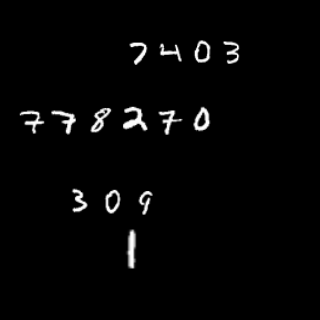 7403
778270
309
1